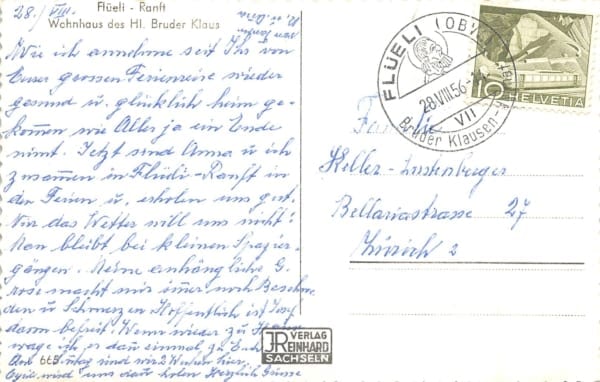 28./VIII.
Flüeli - Ranft
Wohnhaus des Hl. Bruder Klaus
Wie ich annehme seit Ihr von
Eurer grossen Ferienreise wieder
gesund u. glücklich heim ge-
kommen wie Alles ja ein Ende
nimt. Jetzt sind Anna u ich
zusammen in Flüeli-Ranft in
der Ferien u. erholen uns gut.
Nur das Wetter will uns nicht!
Man bleibt bei kleinen Spazier-
gängen. Meine anhängliche
macht mir immer noch Beschwer
den u Schmerzen Hoffentlich ist
davon befreit. Wenn wieder zu
wage ich, er dan einmal zu Euch
Am sind wir 2 Wochen hier.
wird uns dan holen Herzlich Grüsse
668
VERLAG
JR REINHARD
SACHSELN
FLÜELI (OBW.)
28.VIII.56
VII
Bruder Klausen-
10 HELVETIA
Familie
Keller-Lustenberger
Bellariastrasse 27
Zürich 2